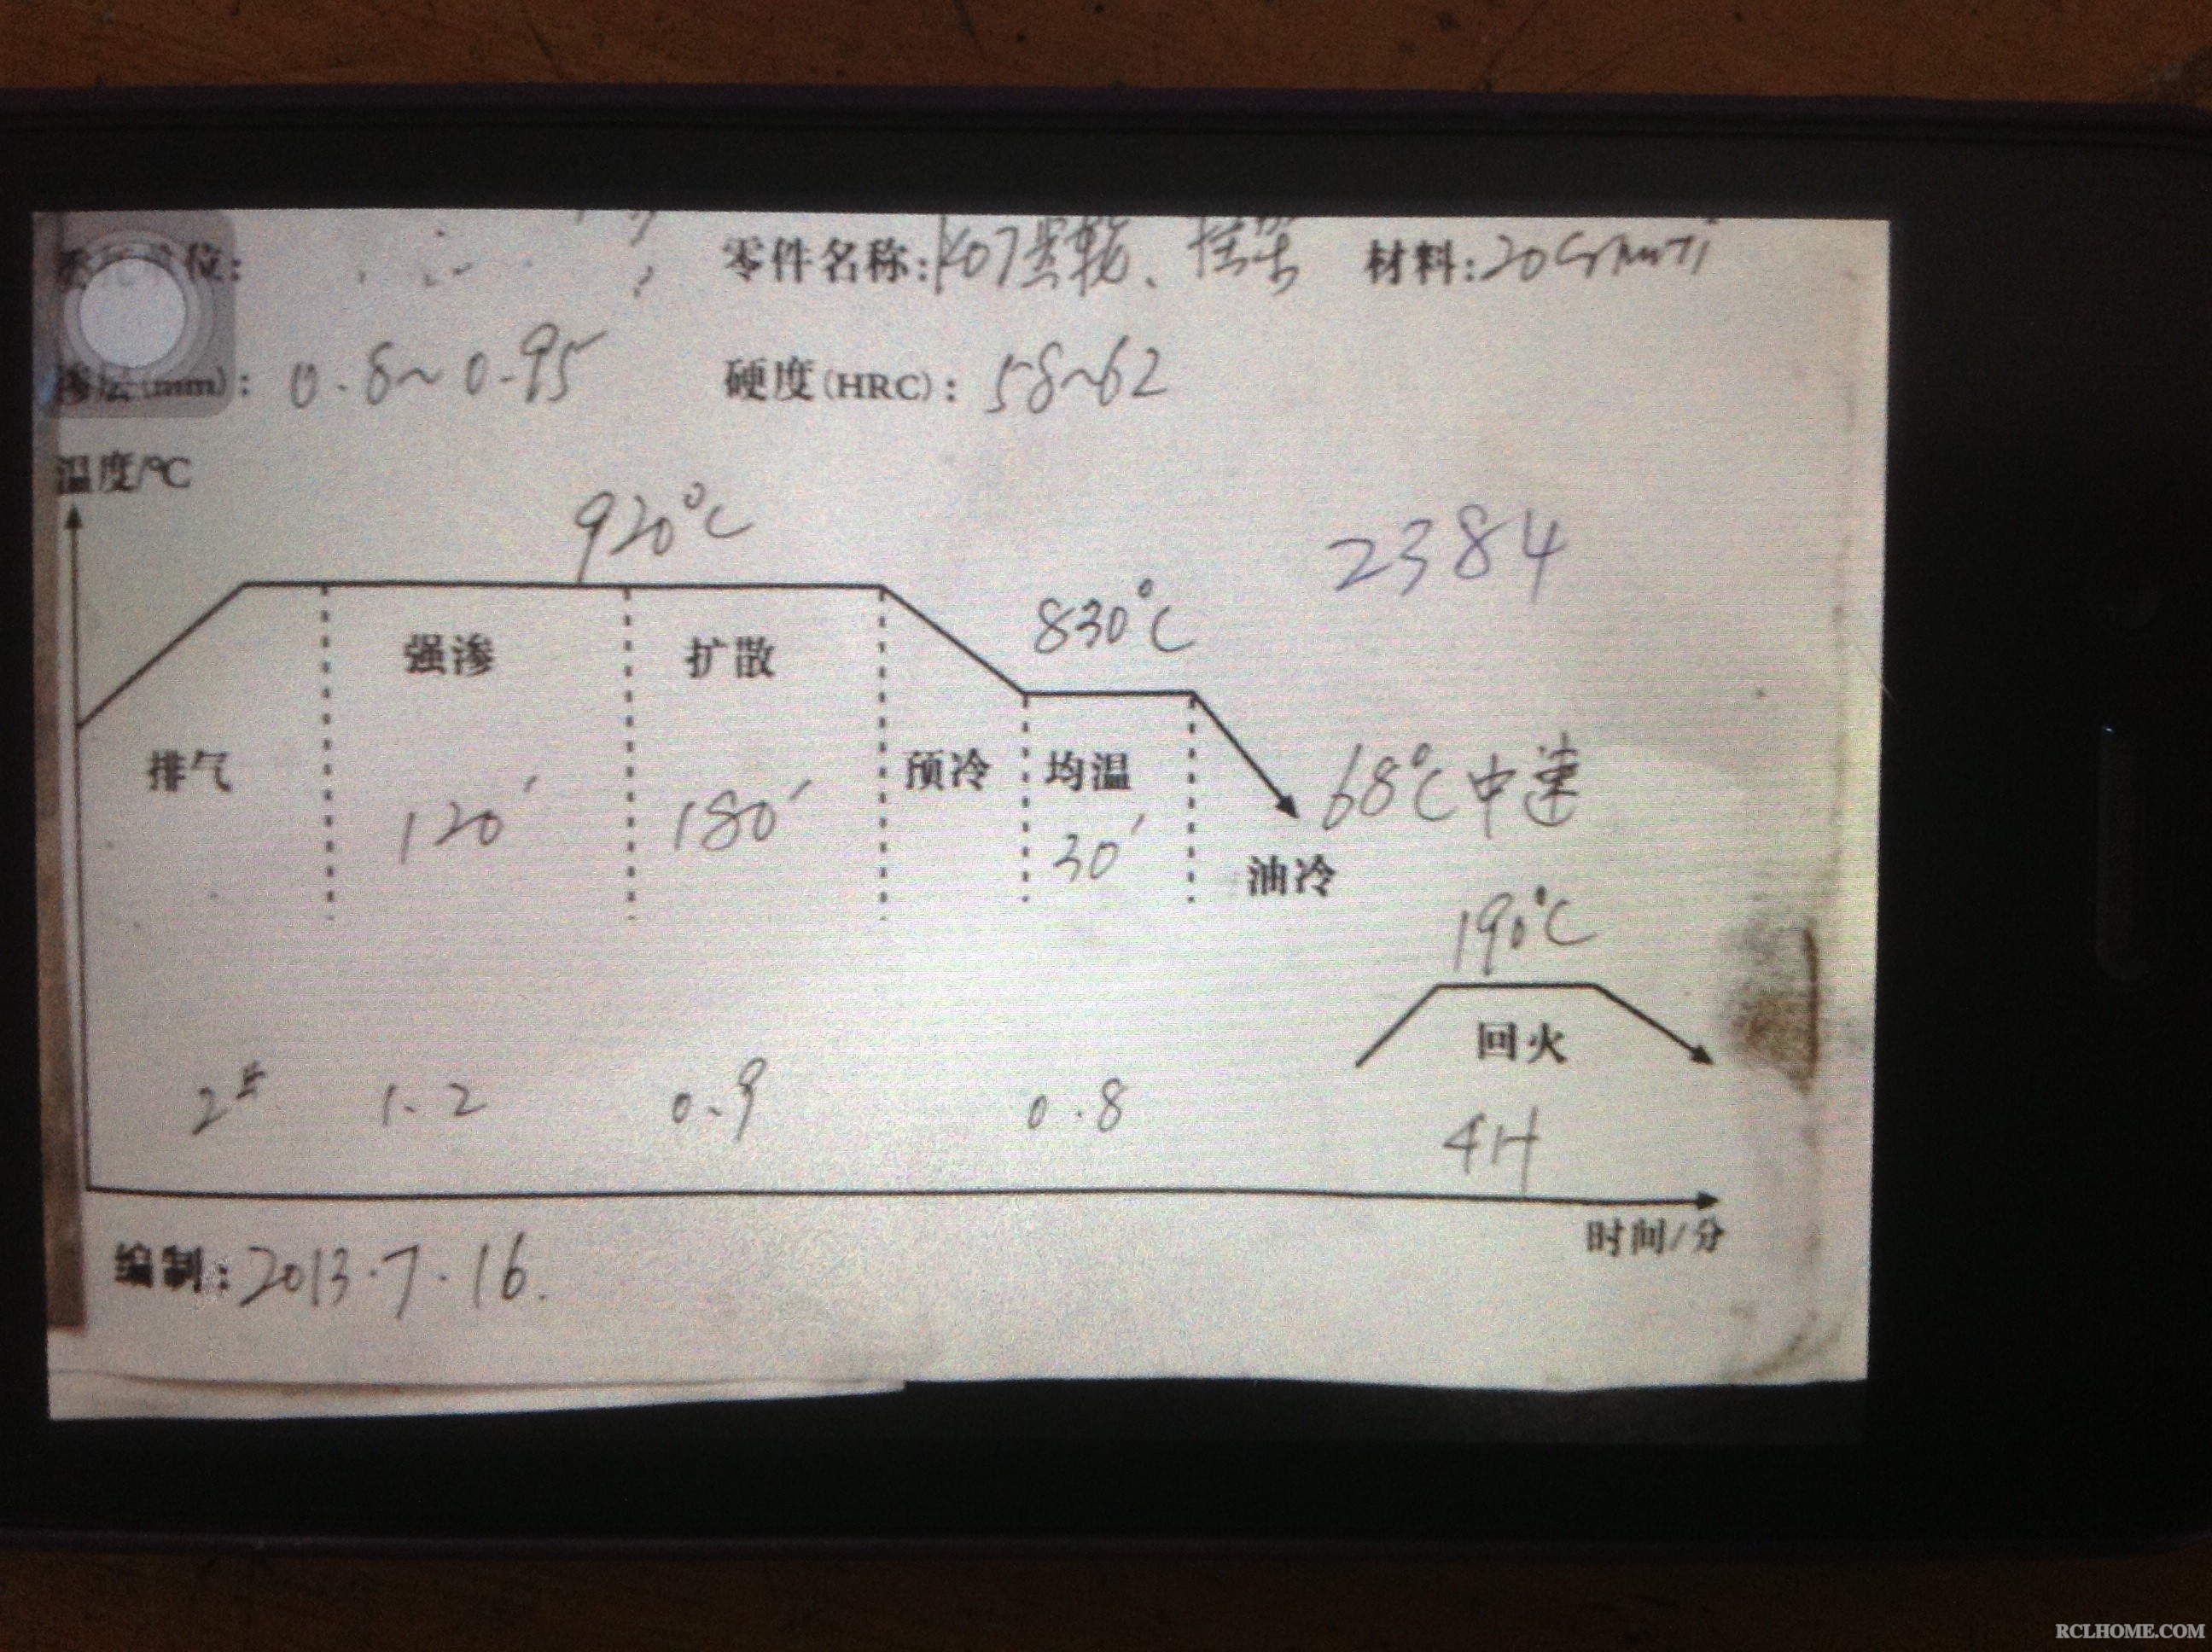 位:
零件名称: K07 材料: 20CrMnTi
渗层(mm): 0.8~0.95 硬度(HRC): 58~62
温度/℃
920℃
2384
830℃
强渗 扩散
排气 预冷 均温 68℃中速
120′ 180′ 30′
油冷
190℃
回火
2# 1.2 0.9 0.8
4H
时间/分
编制: 2013.7.16.
RCLHOME.COM